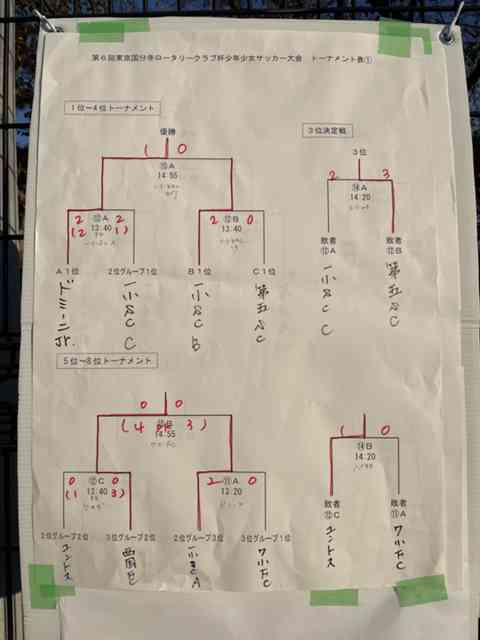 第6回東京国分寺ロータリークラブ杯少年少女サッカー大会 トーナメント表①
1位~4位トーナメント
優勝
1 0
⑮A
14:55
3位決定戦
3位
2 3
⑭A
14:20
敗者 敗者
⑫A ⑫B
一小SC C
第五SC
2 ⑫A 2
(2 13:40 1)
2 ⑫B 0
13:40
A1位 2位グループ1位 B1位 C1位
ドミーニJr.
一小SC C
一小SC B
第五SC
5位~8位トーナメント
0 0
(4 PK 3)
14:55
0 ⑫C 0
(1 13:40 3)
2 ⑪A 0
13:20
2位グループ2位 3位グループ2位 2位グループ3位 3位グループ1位
ユントス
一小SC A
7小FC
1 0
⑭B
14:20
敗者 敗者
⑫C ⑪A
ユントス
7小FC